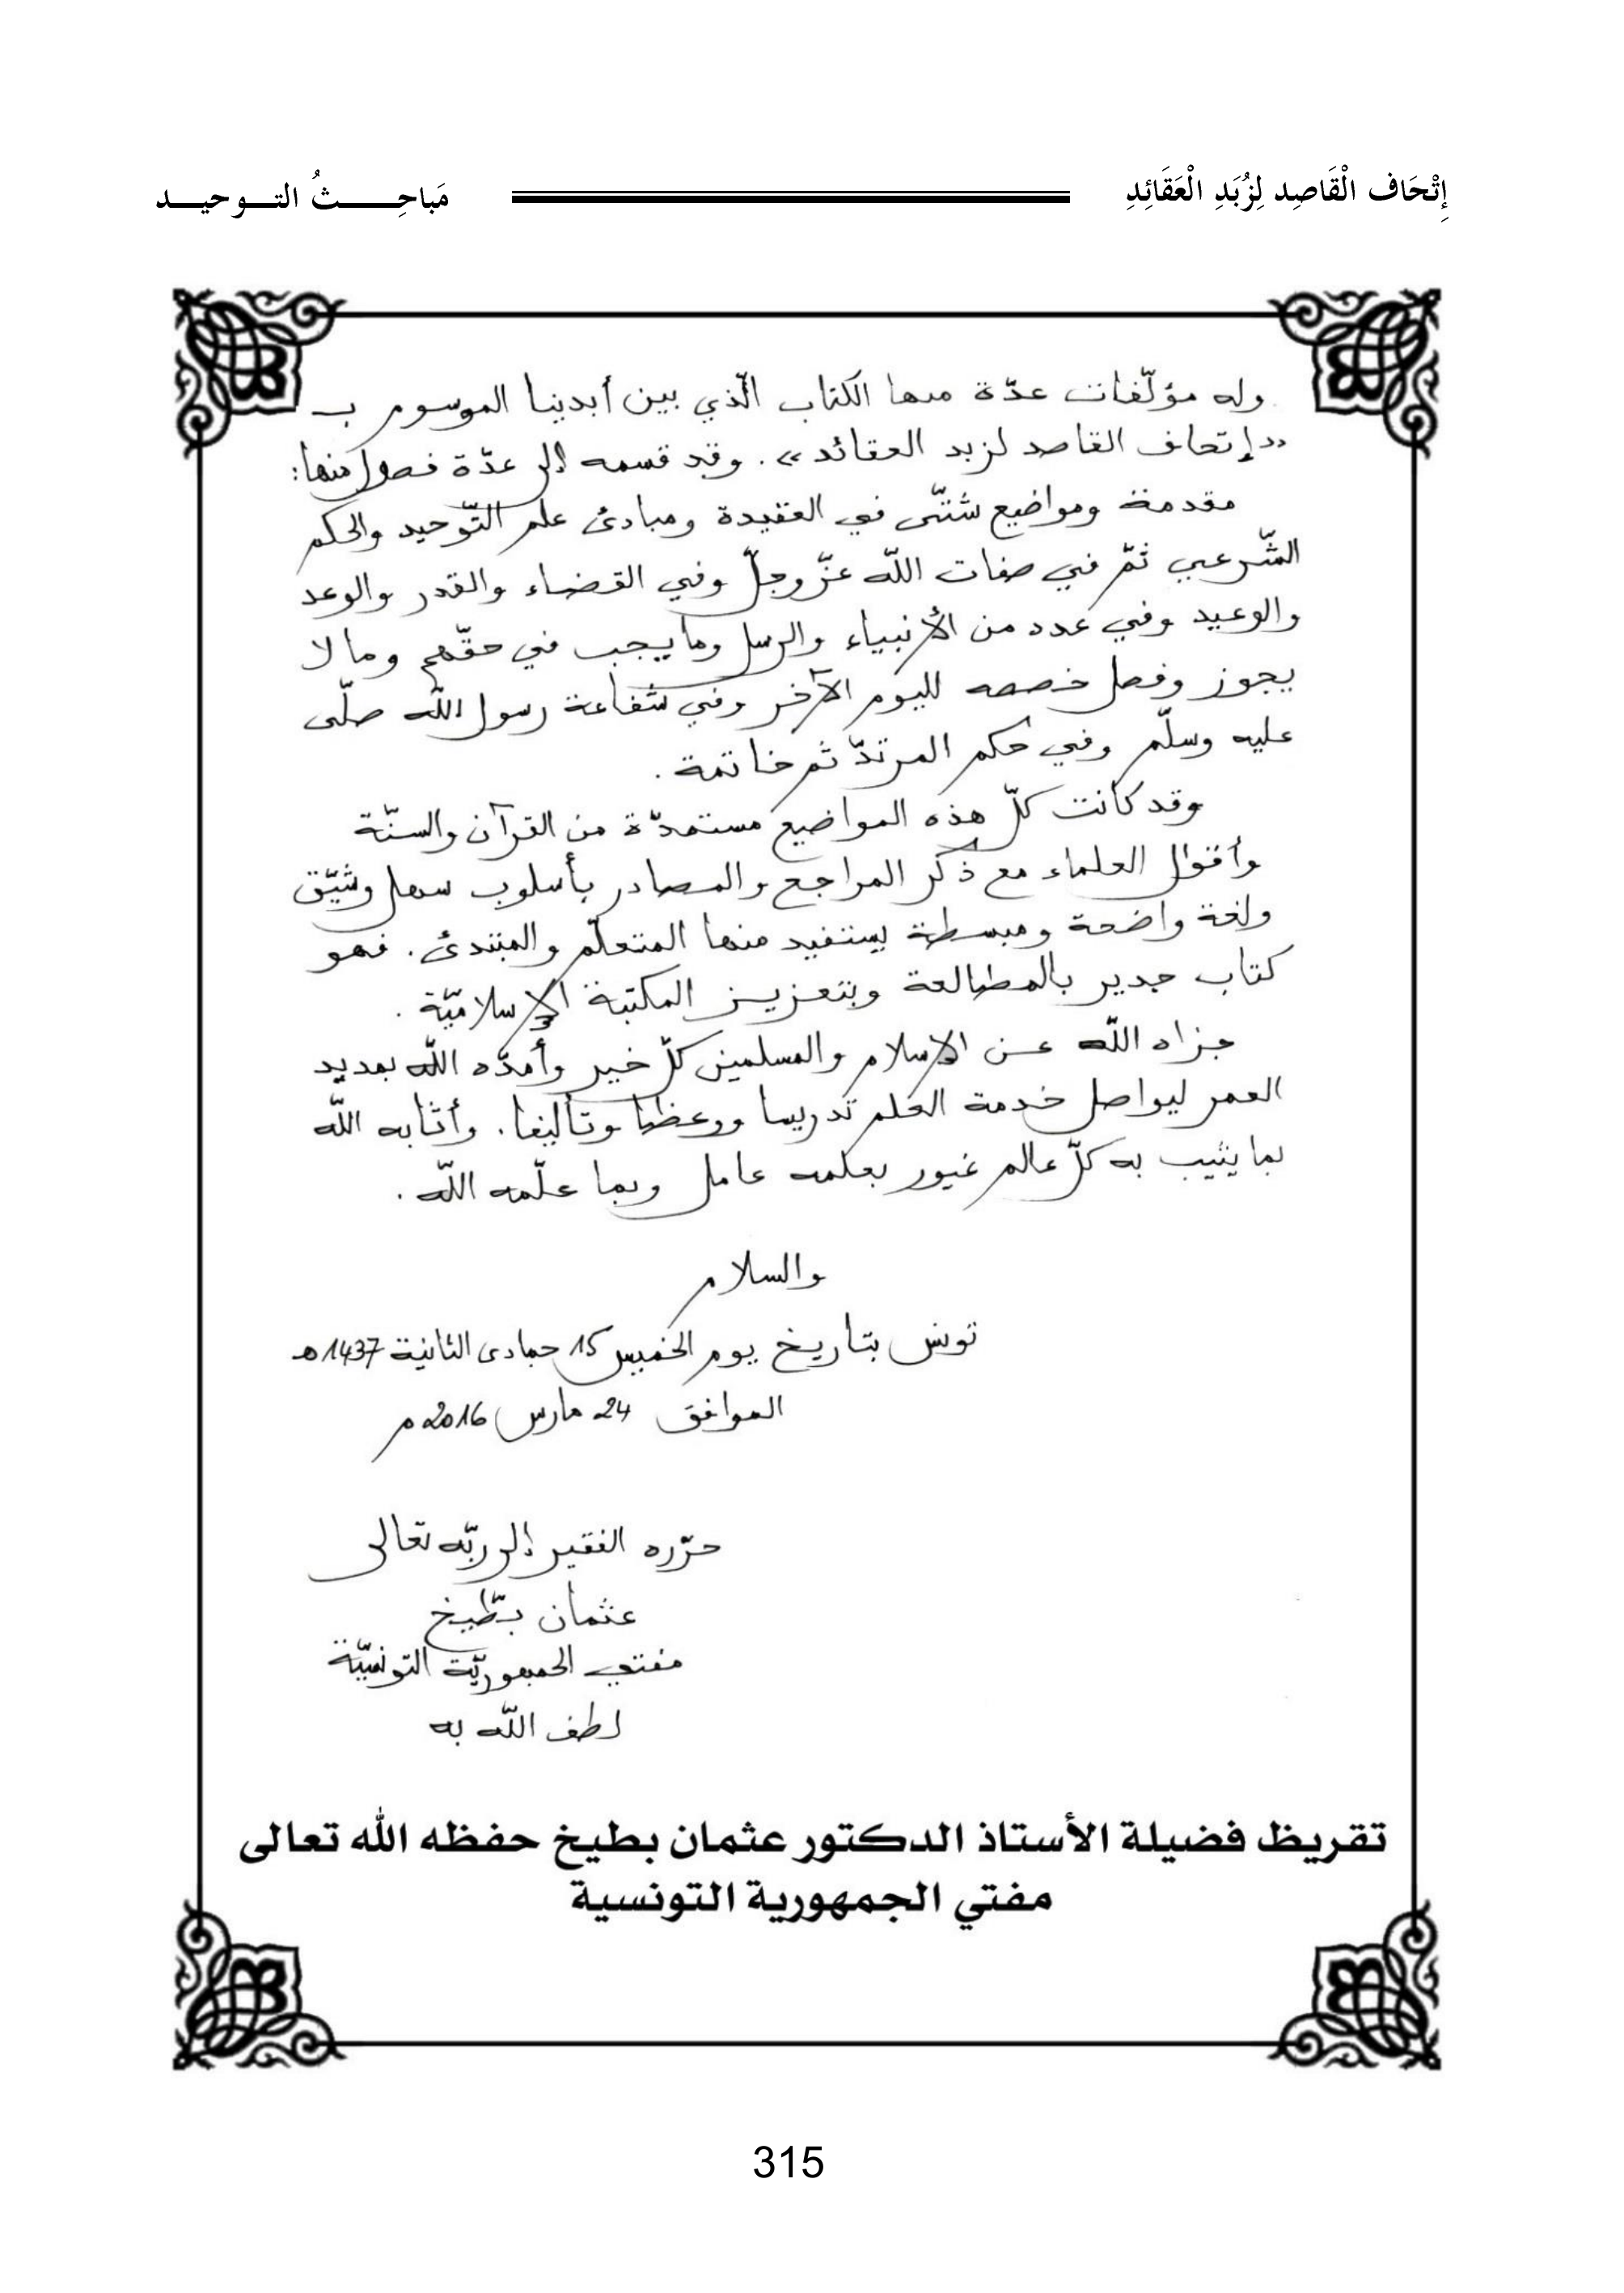 إِتْحَاف الْقَاصِد لِزُبَدِ الْعَقَائِدِ
مَباحِـــثُ التـــوحيـــد
وله مؤلّفات عدّة منها الكتاب الّذي بين أيدينا الموسوم بـ
«إتحاف القاصد لزبد العقائد». وقد قسمه إلى عدّة فصول منها:
مقدمة ومواضيع شتّى في العقيدة ومبادئ علم التّوحيد والحكم
الشّرعي ثمّ في صفات اللّه عزّ وجلّ وفي القضاء والقدر والوعد
والوعيد وفي عدد من الأنبياء والرسل وما يجب في حقّهم وما لا
يجوز وفصل خصصه لليوم الآخر وفي شفاعة رسول اللّه صلّى
عليه وسلّم وفي حكم المرتدّ ثم خاتمة.
وقد كانت كلّ هذه المواضيع مستمدّة من القرآن والسنّة
وأقوال العلماء مع ذكر المراجع والمصادر بأسلوب سهل وشيّق
ولغة واضحة ومبسطة يستفيد منها المتعلّم والمبتدئ. فهو
كتاب جدير بالمطالعة وبتعزيز المكتبة الإسلاميّة.
جزاه اللّه عن الإسلام والمسلمين كلّ خير وأمدّه اللّه بمديد
العمر ليواصل خدمة العلم تدريسا ووعظا وتأليفا. وأثابه اللّه
بما يثيب به كلّ عالم غيور بعلمه عامل وبما علّمه اللّه.
والسلام
تونس بتاريخ يوم الخميس 15 جمادى الثانية 1437هـ
الموافق 24 مارس 2016م
حرّره الفقير إلى ربّه تعالى
عثمان بطّيخ
مفتي الجمهوريّة التونسيّة
لطف اللّه به
تقريظ فضيلة الأستاذ الدكتور عثمان بطيخ حفظه الله تعالى
مفتي الجمهورية التونسية
315